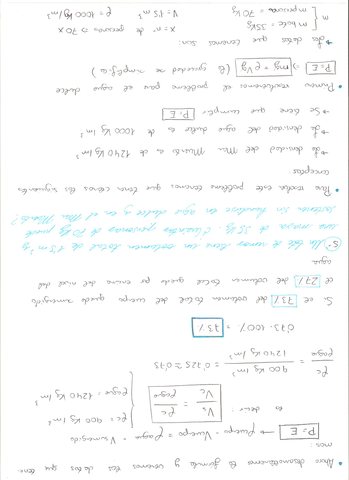 • Ahora desarrollamos la fórmula y usamos los datos que tene-
mos:
P=E → ρcuerpo · Vcuerpo = ρagua · Vsumergido
es decir:
Vs/Vc = ρc/ρagua
ρc = 900 kg/m³
ρagua = 1240 kg/m³
ρc/ρagua = 900 kg/m³ / 1240 kg/m³ = 0.725 ≅ 0.73
0.73 · 100% = 73%
Si el 73% del volumen total del cuerpo queda sumergido
el 27% del volumen total queda por encima del nivel del
agua
5º Un bote de remos tiene un volumen total de 1.5 m³ y
una masa de 35 kg. ¿Cuántas personas de 70 kg puede
sostener sin hundirse en agua dulce y en el Mar Muerto?
• Para resolver este problema tenemos que tener claros los siguientes
conceptos:
→ la densidad del Mar Muerto es 1240 kg/m³
→ la densidad del agua dulce es de 1000 kg/m³
→ Se tiene que cumplir P=E
• Primero resolveremos el problema para el agua dulce
P=E → mg = ρVg (la gravedad se simplifica)
→ los datos que tenemos son:
m m bote = 35 kg
m personas = 70 kg
x = nº de personas ⇒ 70x
V = 1'5 m³ ρ = 1000 kg/m³